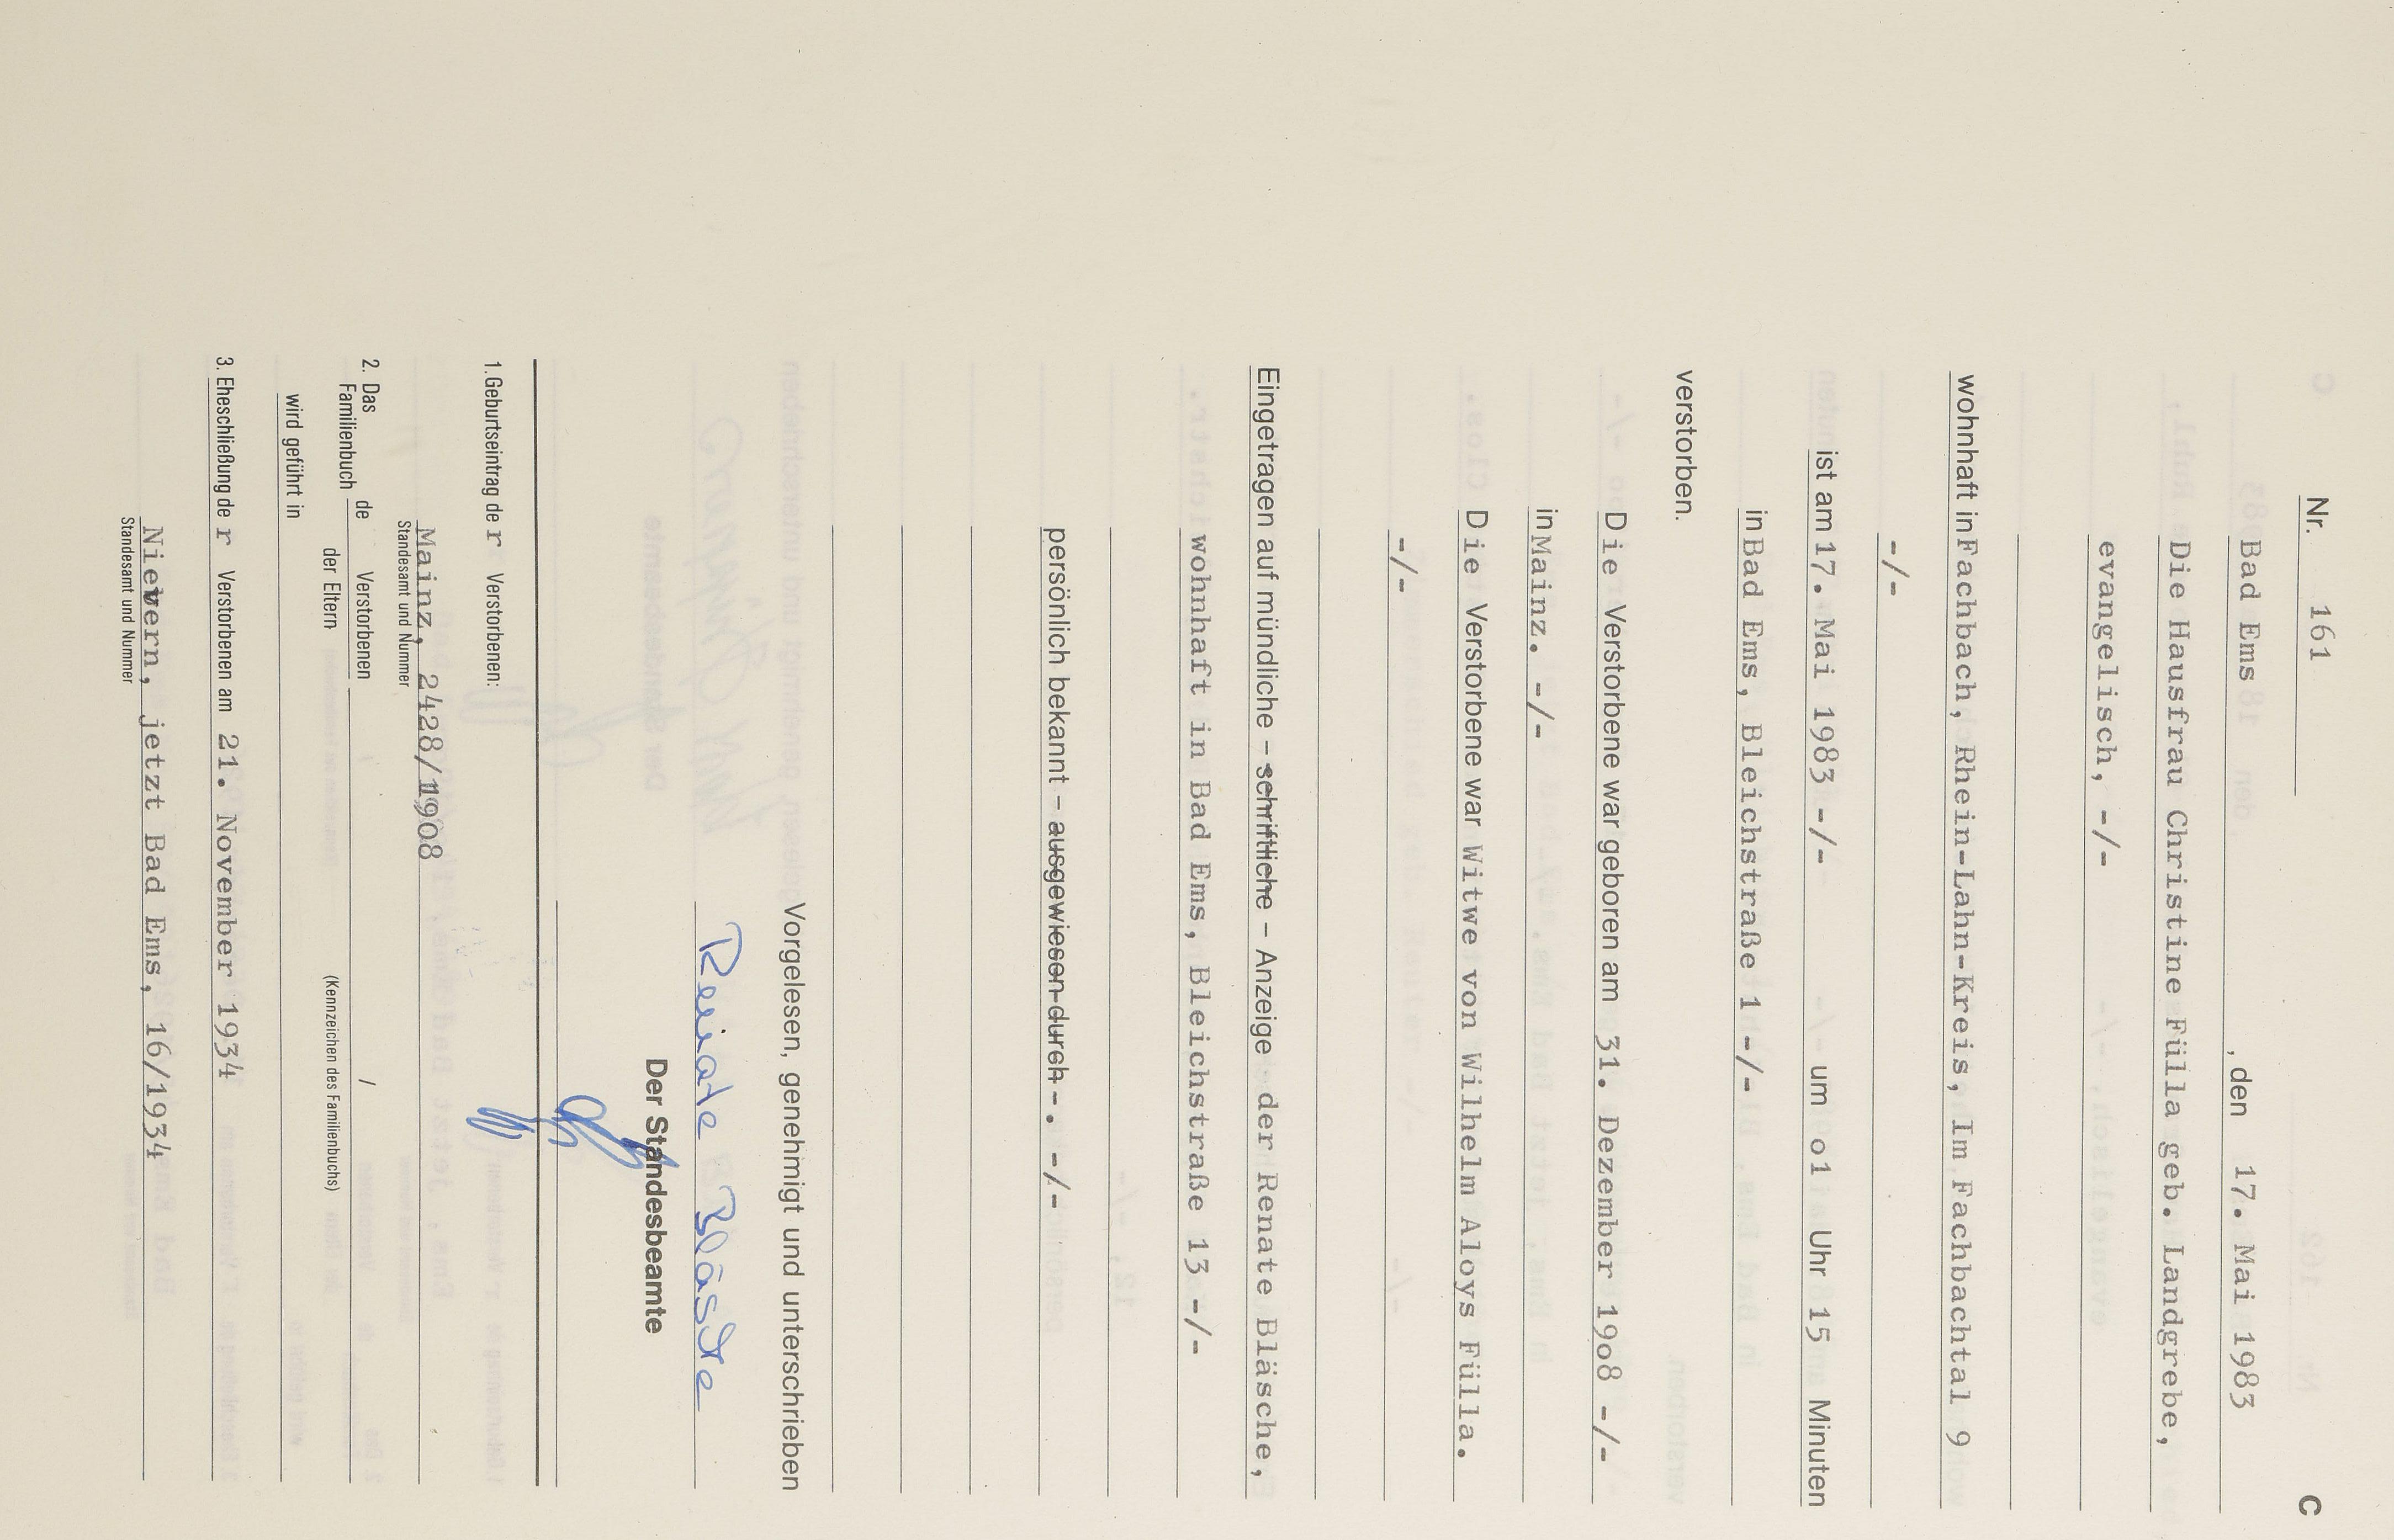 C
Nr. 161
Bad Ems, den 17. Mai 1983
Die Hausfrau Christine Fülla geb. Landgrebe,
evangelisch, -/-
wohnhaft in Fachbach, Rhein-Lahn-Kreis, Im Fachbachtal 9
-/-
ist am 17. Mai 1983 -/- um o1 Uhr 15 Minuten
in Bad Ems, Bleichstraße 1 -/-
verstorben.
Die Verstorbene war geboren am 31. Dezember 19o8 -/-
in Mainz. -/-
Die Verstorbene war Witwe von Wilhelm Aloys Fülla.
-/-
Eingetragen auf mündliche – schriftliche – Anzeige der Renate Bläsche,
wohnhaft in Bad Ems, Bleichstraße 13 -/-
persönlich bekannt – ausgewiesen durch – . -/-
Vorgelesen, genehmigt und unterschrieben
Renate Bläsche
Der Standesbeamte
1. Geburtseintrag der Verstorbenen:
Mainz, 2428/1908
Standesamt und Nummer
2. Das Familienbuch de Verstorbenen /
der Eltern (Kennzeichen des Familienbuchs)
wird geführt in
3. Eheschließung der Verstorbenen am 21. November 1934
Nievern, jetzt Bad Ems, 16/1934
Standesamt und Nummer